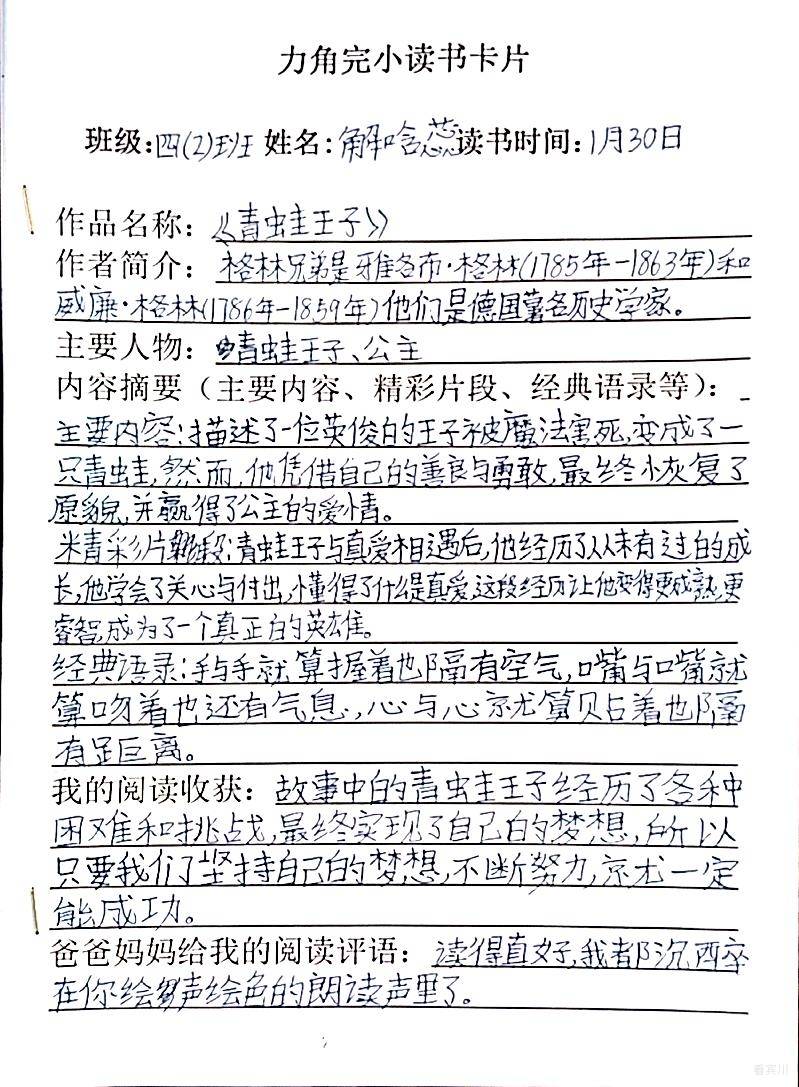 力角完小读书卡片
班级:四(2)班 姓名:解晗蕊读书时间:1月30日
作品名称:《青蛙王子》
作者简介: 格林兄弟是雅各布·格林(1785年-1863年)和
威廉·格林(1786年-1859年)他们是德国著名历史学家。
主要人物: 青蛙王子、公主
内容摘要(主要内容、精彩片段、经典语录等):
主要内容:描述了一位英俊的王子被魔法害死,变成了一
只青蛙,然而,他凭借自己的善良与勇敢,最终恢复了
原貌,并赢得了公主的爱情。
精彩片段:青蛙王子与真爱相遇后,他经历了从未有过的成
长,他学会了关心与付出,懂得了什么是真爱,这段经历让他变得更成熟,更
睿智,成为了一个真正的英雄。
经典语录:手与手就算握着也隔有空气,嘴与嘴就
算吻着也还有气息,心与心就算贴着也隔
有距离。
我的阅读收获:故事中的青蛙王子经历了各种
困难和挑战,最终实现了自己的梦想,所以
只要我们坚持自己的梦想,不断努力,就一定
能成功。
爸爸妈妈给我的阅读评语: 读得真好,我都沉醉
在你绘声绘色的朗读声里了。
看宾川